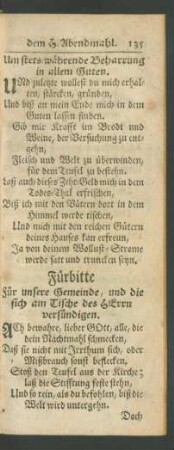 dem H. Abendmahl. 135
Um stets währende Beharrung
in allem Guten.
UNd zuletzt wollest du mich erhal-
ten, stärcken, gründen,
Und biß an mein Ende mich in dem
Guten lassen finden.
Gib mir Krafft im Brodt und
Weine, der Versuchung zu ent-
gehn,
Fleisch und Welt zu überwinden,
für dem Teufel zu bestehn.
Laß auch dieses Zehr-Geld mich in dem
Todes-Thal erfrischen,
Beß ich mit den Vätern dort in dem
Himmel werde tischen,
Und mich mit den reichen Gütern
deines Hauses kan erfreun,
Ja von deinem Wollust-Strome
werde satt und truncken seyn.
Fürbitte
Für unsere Gemeinde, und die
sich am Tische des HErrn
versündigen.
ACh bewahre, lieber GOtt, alle, die
dein Nachtmahl schmecken,
Daß sie nicht mit Irrthum sich, oder
Mißbrauch sonst beflecken,
Stoß den Teufel aus der Kirche;
laß die Stifftung feste stehn,
Und so rein, als du befohlen, biß die
Welt wird untergehn.
Doch